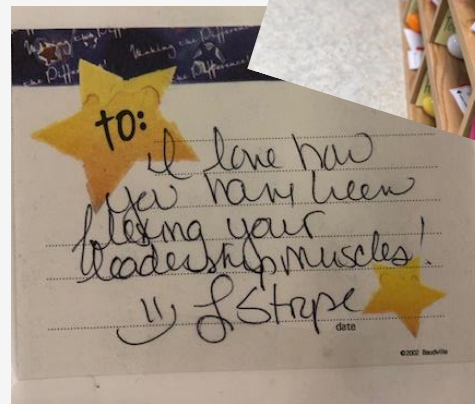 Making the Difference!
Making the Difference!
the Difference!
to:
I love how
you have been
flexing your
leadership muscles!
date
©2002 Baudville